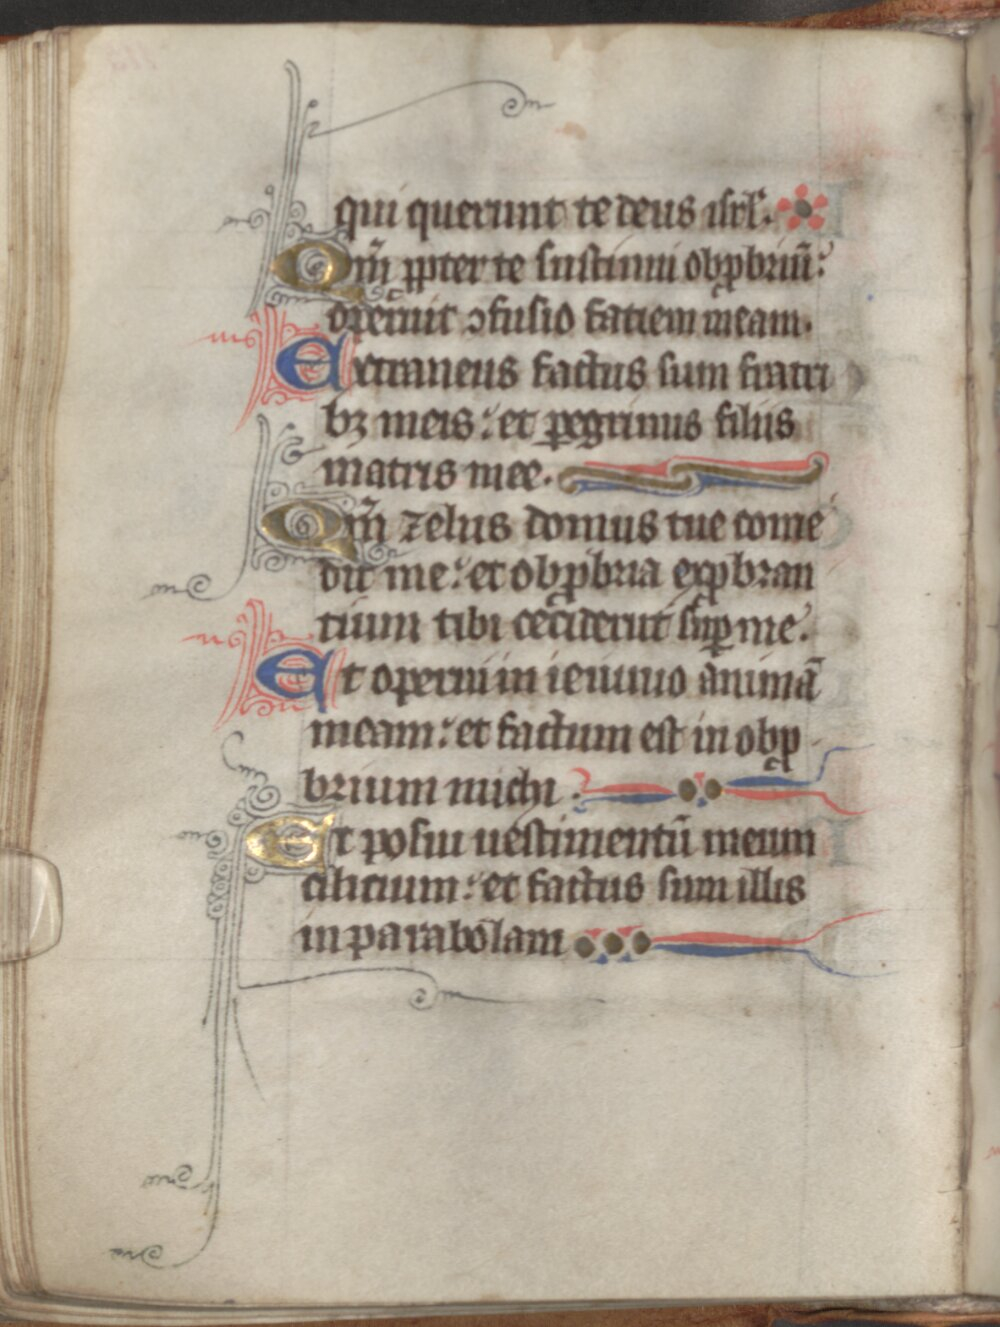 qui querunt te deus isrl̄.
Qm̄ ꝓpter te sustinui obꝓbriū:
operuit ↄfusio faciem meam.
Extraneus factus sum fratri
bꝫ meis: et ꝑegrinus filiis
matris mee.
Qm̄ zelus domus tue come
dit me: et obꝓbria exꝓbran
tium tibi ceciderūt suꝑ me.
Et operui in ieiunio animā
meam: et factum est in obꝓ
brium michi.
Et posui uestimentū meum
cilicium: et factus sum illis
in parabolam